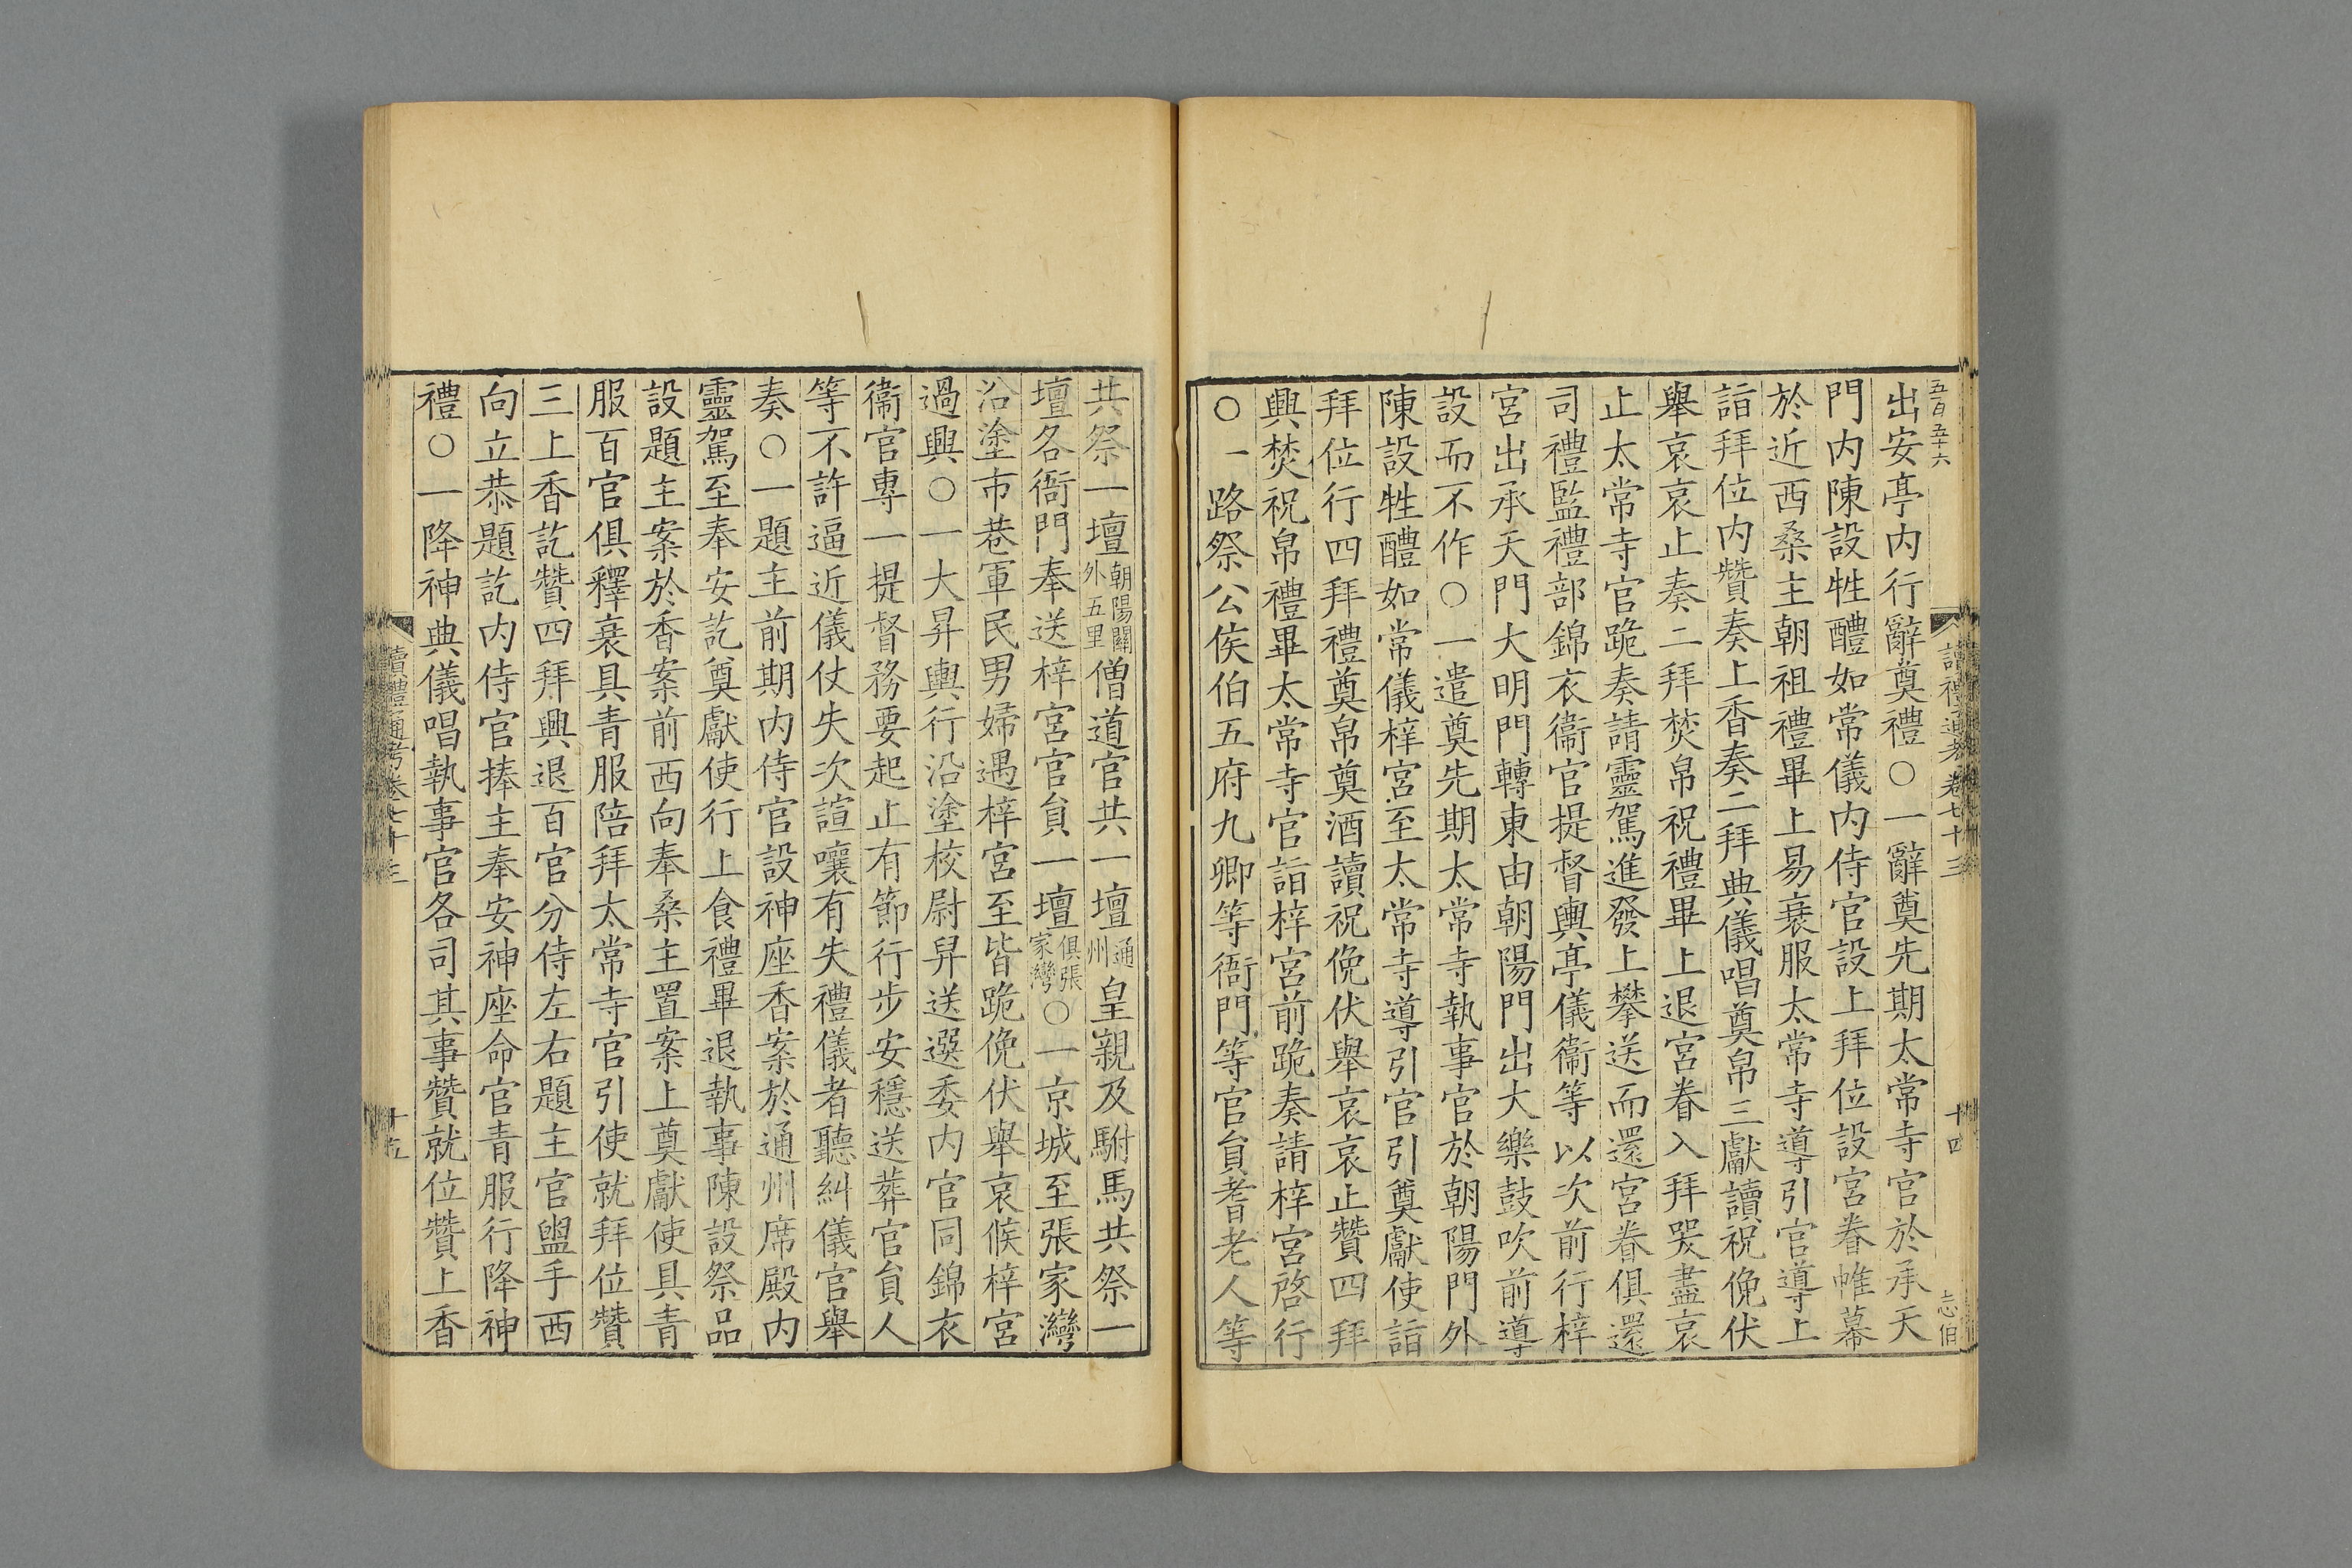 五百五十六
讀禮通考卷七十三
十四
志伯
出安亭内行辭奠禮○一辭奠先期太常寺官於承天
門内陳設牲醴如常儀内侍官設上拜位設宮眷帷幕
於近西桑主朝祖禮畢上易衰服太常寺導引官導上
詣拜位内贊奏上香奏二拜典儀唱奠帛三獻讀祝俛伏
舉哀哀止奏二拜焚帛祝禮畢上退宮眷入拜哭盡哀
止太常寺官跪奏請靈駕進發上攀送而還宮眷俱還
司禮監禮部錦衣衞官提督輿亭儀衞等以次前行梓
宮出承天門大明門轉東由朝陽門出大樂鼓吹前導
設而不作○一遣奠先期太常寺執事官於朝陽門外
陳設牲醴如常儀梓宮至太常寺導引官引奠獻使詣
拜位行四拜禮奠帛奠酒讀祝俛伏舉哀哀止贊四拜
興焚祝帛禮畢太常寺官詣梓宮前跪奏請梓宮啓行
○一路祭公侯伯五府九卿等衙門等官員耆老人等
共祭一壇朝陽關外五里僧道官共一壇通州皇親及駙馬共祭一
壇各衙門奉送梓宮官員一壇俱張家灣○一京城至張家灣
沿塗市巷軍民男婦遇梓宮至皆跪俛伏舉哀候梓宮
過興○一大昇輿行沿塗校尉舁送選委内官同錦衣
衞官專一提督務要起止有節行步安穩送葬官員人
等不許逼近儀仗失次諠嚷有失禮儀者聽糾儀官舉
奏○一題主前期内侍官設神座香案於通州席殿内
靈駕至奉安訖奠獻使行上食禮畢退執事陳設祭品
設題主案於香案前西向奉桑主置案上奠獻使具青
服百官俱釋衰具青服陪拜太常寺官引使就拜位贊
三上香訖贊四拜興退百官分侍左右題主官盥手西
向立恭題訖内侍官捧主奉安神座命官青服行降神
禮○一降神典儀唱執事官各司其事贊就位贊上香
讀禮通考卷七十三
十五